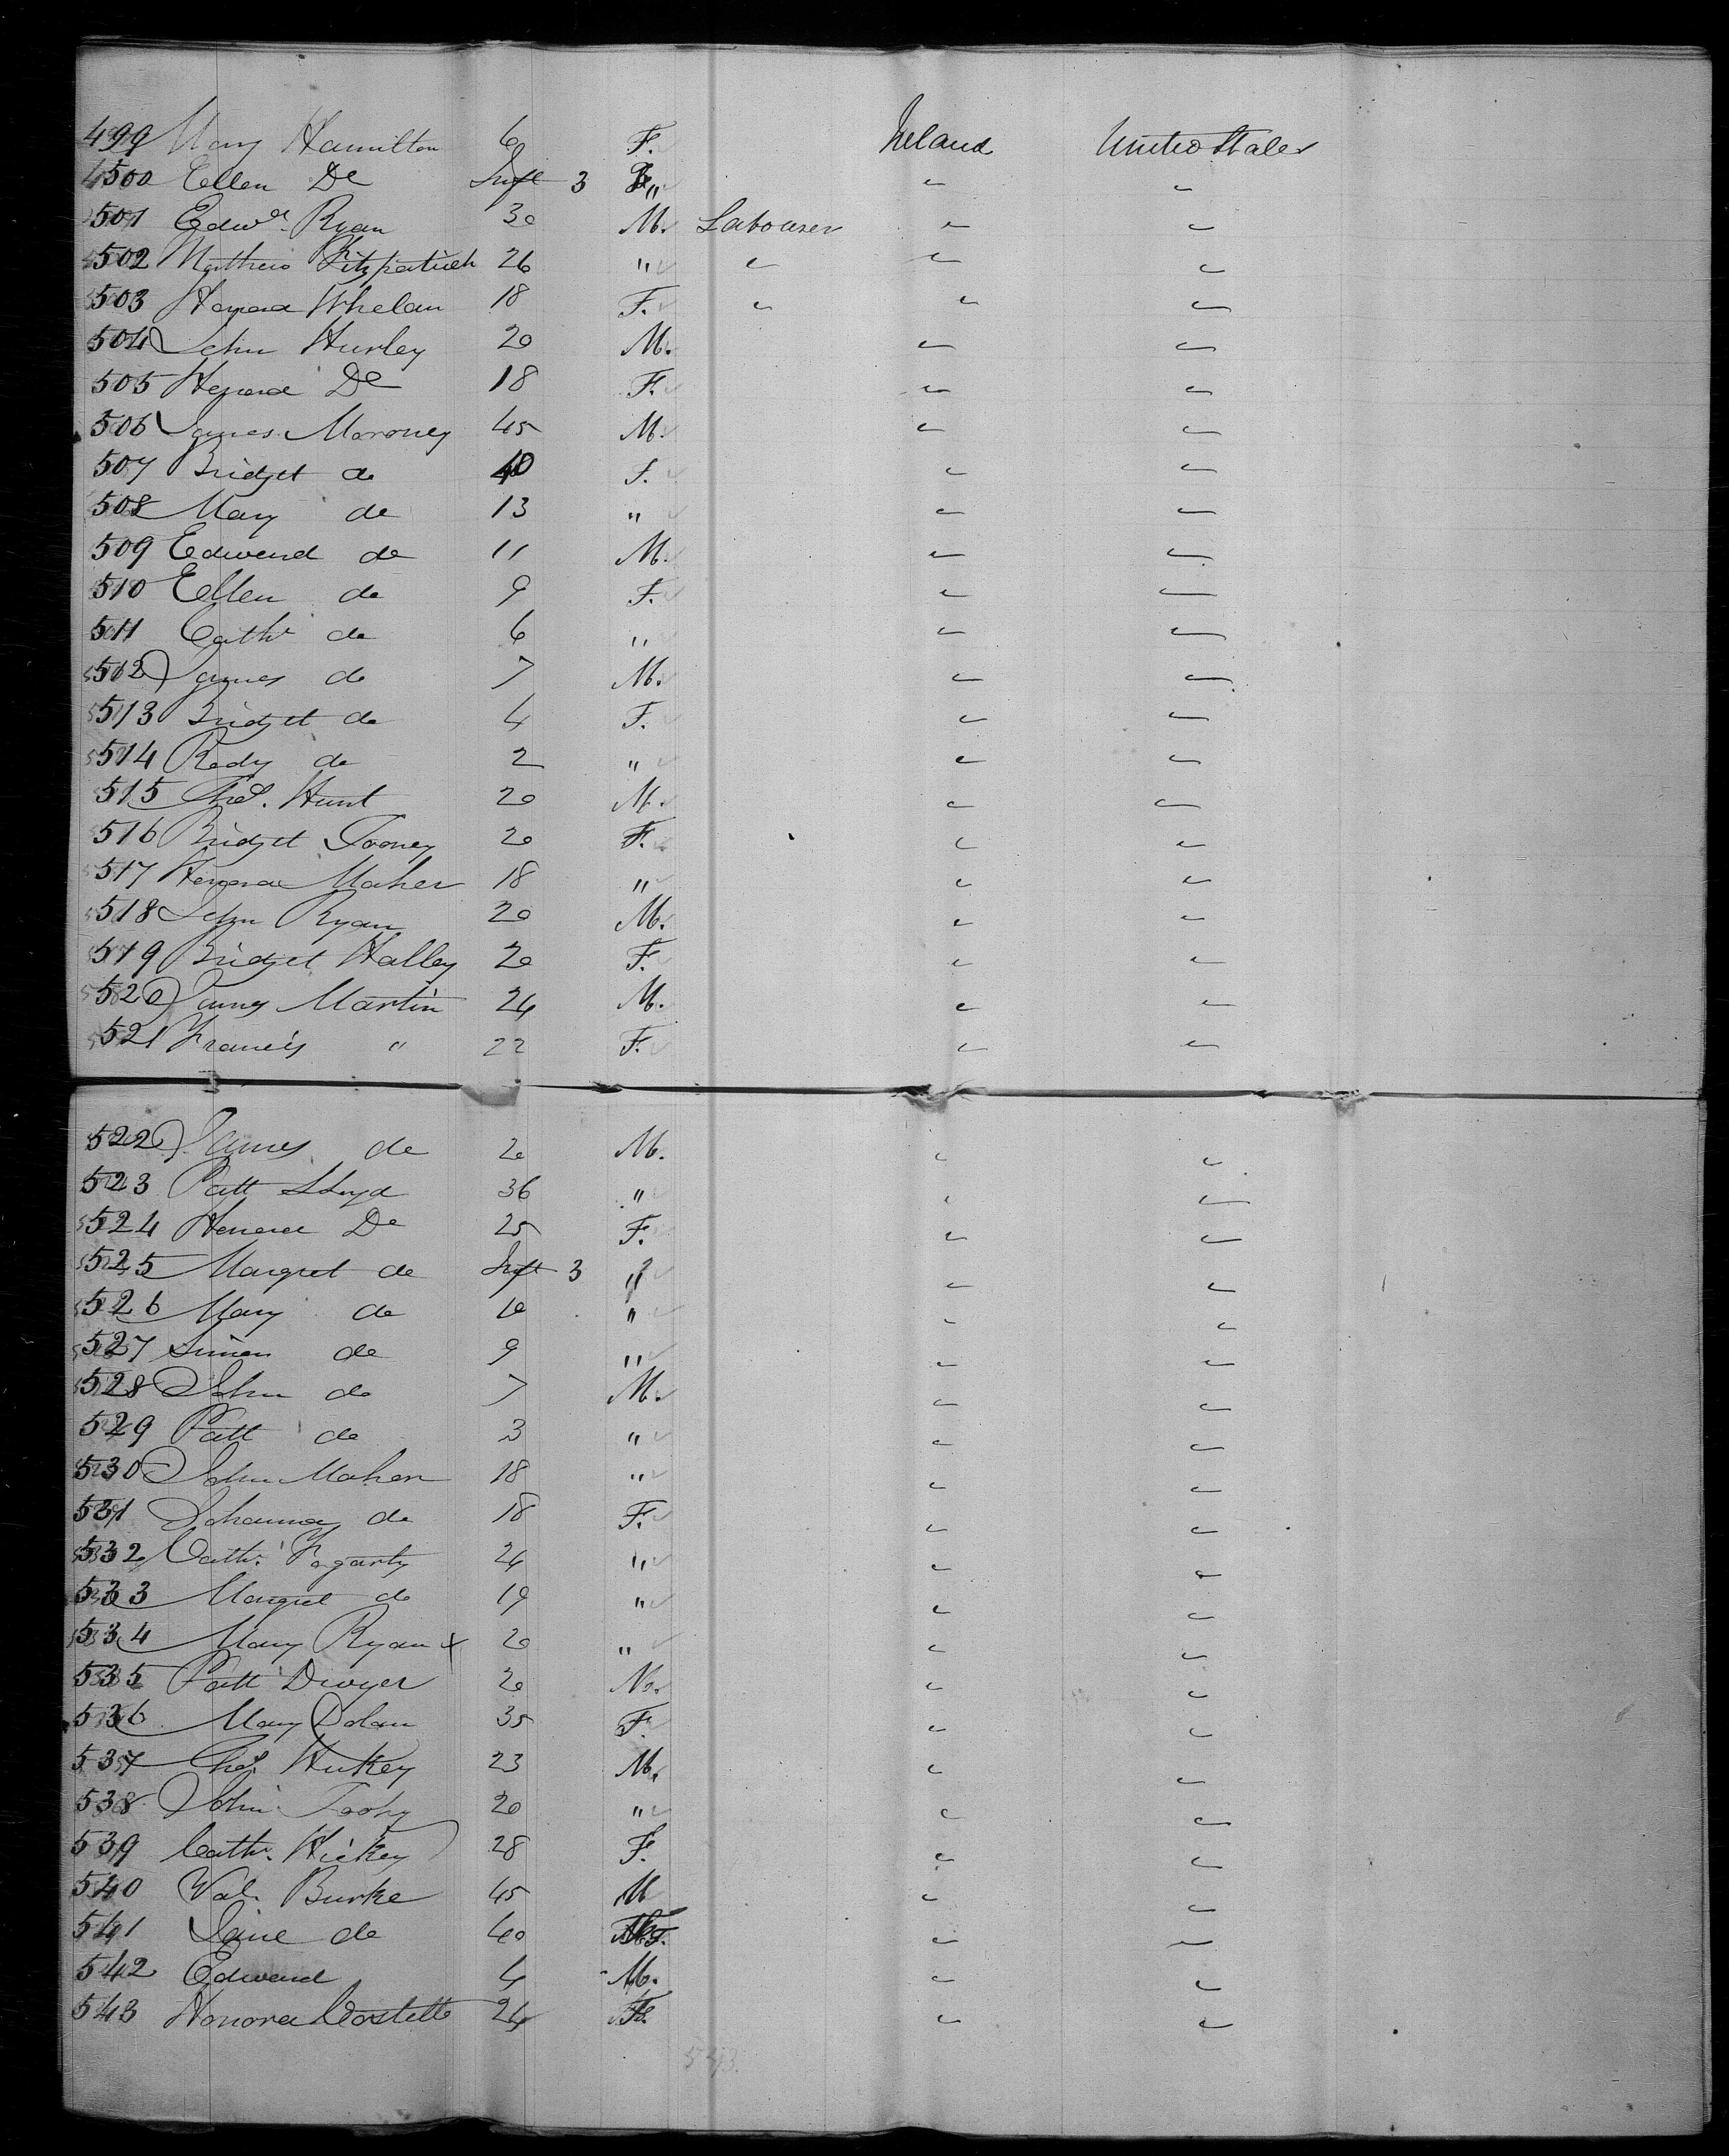 499 Mary Hamilton 6 F. Ireland United States
500 Ellen Do Inft 3 " " "
501 Edwd. Ryan 30 M. Labourer " "
502 Mathew Fitzpatrick 26 " " " "
503 Honora Whelan 18 F. " " "
504 John Hurley 20 M. " "
505 Honora Do 18 F. " "
506 James Moroney 45 M. " "
507 Bridget do 40 F. " "
508 Mary do 13 " " "
509 Edward do 11 M. " "
510 Ellen do 9 F. " "
511 Cathr do 6 " " "
512 James do 7 M. " "
513 Bridget do 4 F. " "
514 Rody do 2 " " "
515 Thos. Hunt 20 M. " "
516 Bridget Tooney 20 F. " "
517 Honora Maher 18 " " "
518 John Ryan 20 M. " "
519 Bridget Halley 20 F. " "
520 James Martin 24 M. " "
521 Francis " 22 F. " "
522 James do 20 M. " "
523 Patt Lloyd 36 " " "
524 Honora Do 25 F. " "
525 Margret do Inft 3 " " "
526 Mary do 10 " " "
527 Simon do 9 " " "
528 John do 7 M. " "
529 Patt do 3 " " "
530 John Maher 18 " " "
531 Johanna do 18 F. " "
532 Cathr. Fogarty 24 " " "
533 Margret do 19 " " "
534 Mary Ryan x 20 " " "
535 Patt Dwyer 20 M. " "
536 Mary Dolan 35 F. " "
537 Thos. Hickey 23 M. " "
538 John Toohy 20 " " "
539 Cathr. Hickey 28 F. " "
540 Wal. Burke 45 M " "
541 Jane do 40 F. " "
542 Edward 4 M. " "
543 Honora Costello 24 F. " "
543.